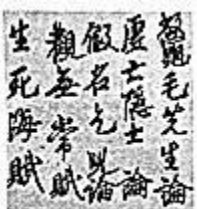 毛先生論
虚亡隱士論
假名乞兒論
觀無常賦
生死海賦